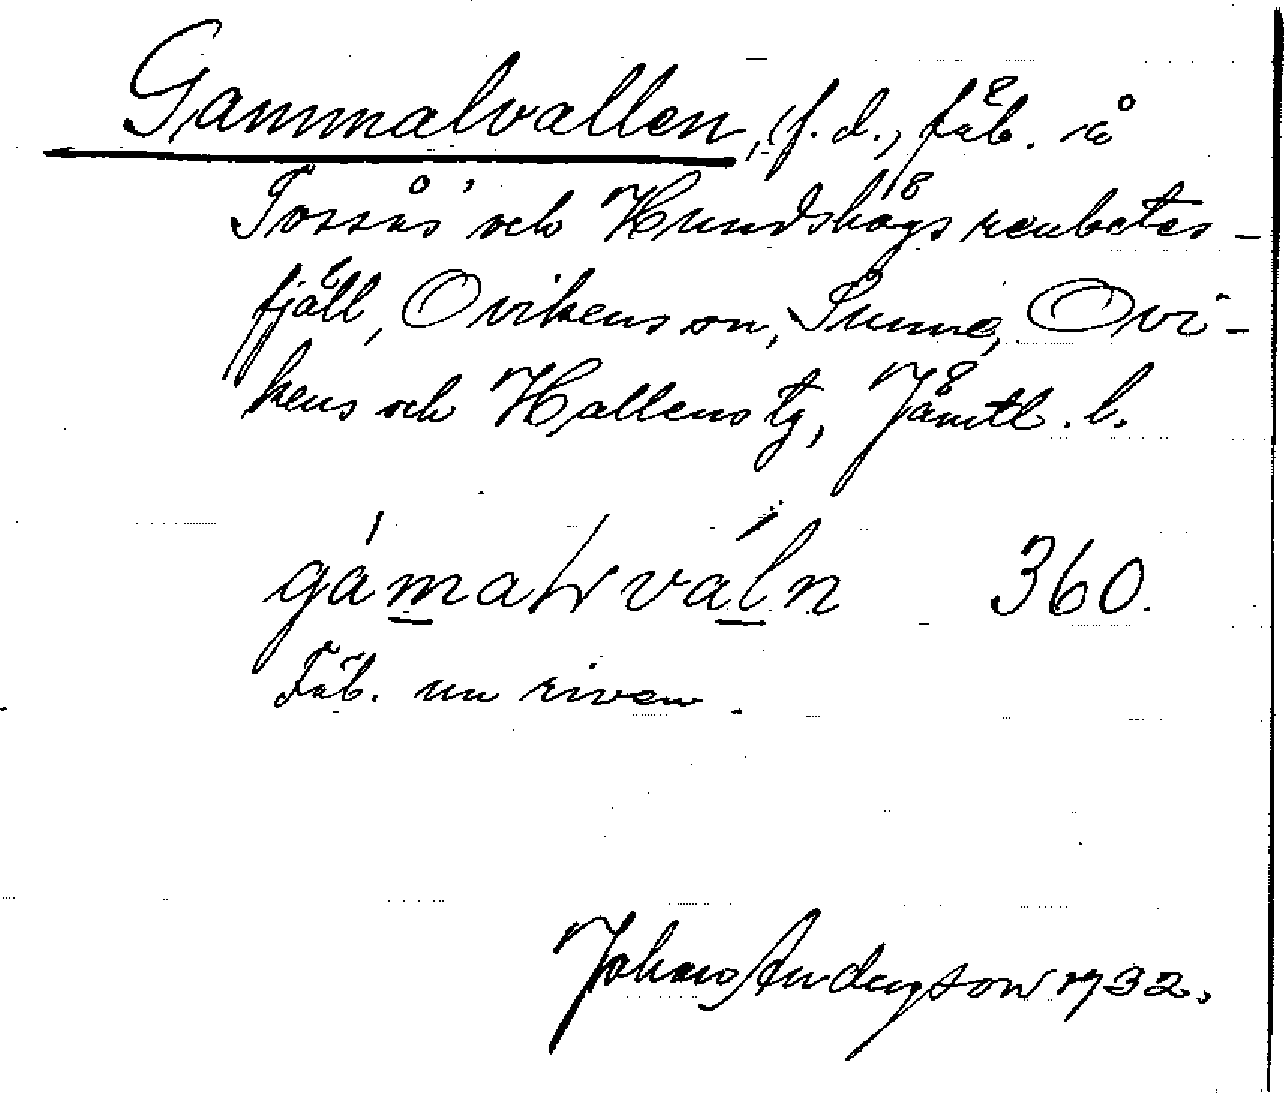 Gammalvallen, (f. d., fäb. å
Tossås och Hundshögs renbetes-
fjäll, Ovikens sn, Sunne, Ovi-
kens och Hallens tg, Jämtl. l.
gámal₍vàln 360.
Fäb. nu riven.
Johans Anderson 1932.